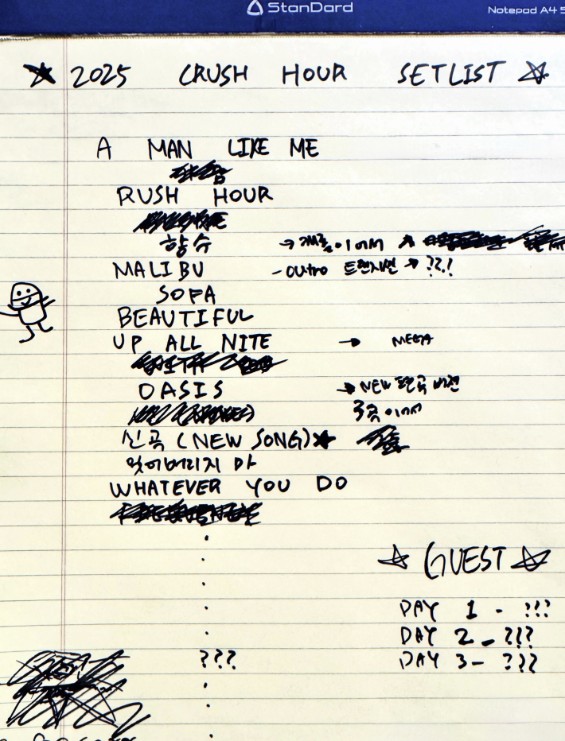 StanDard Notepad A4 5
★ 2025 CRUSH HOUR SETLIST ☆
A MAN LIKE ME
RUSH HOUR
향수 → 이어서
MALIBU - outro → ??!
SOFA
BEAUTIFUL
UP ALL NITE → MEGA
OASIS → NEW 편곡 버전
이어서
신곡 (NEW SONG)★
잊어버리지 마
WHATEVER YOU DO
☆ GUEST ☆
DAY 1 - ???
DAY 2 - ???
???
DAY 3 - ???